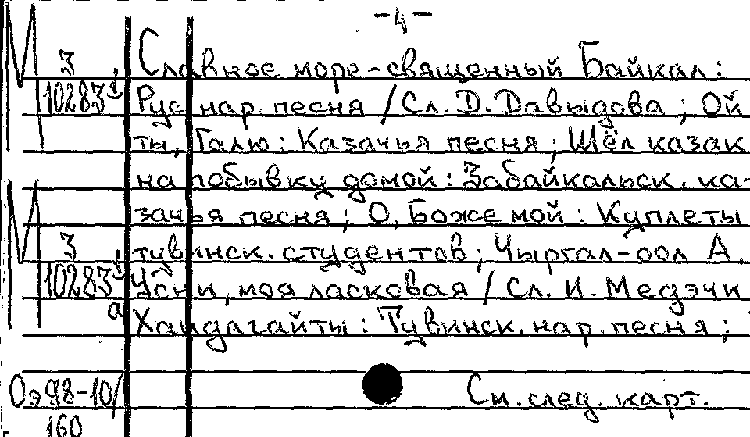 -4-
М
З
10283¹
Славное море-священный Байкал:
Рус. нар. песня / Сл. Д. Давыдова; Ой
ты, Галю: Казачья песня; Шёл казак
на побывку домой: Забайкальск. ка-
зачья песня; О, Боже мой: Куплеты
М
З
10283¹
а
тувинск. студентов; Чыргал-оол А.
Усни, моя ласковая / Сл. И. Медэчи
Хандагайты: Тувинск. нар. песня;
Оэ98-10/
160
См. след. карт.